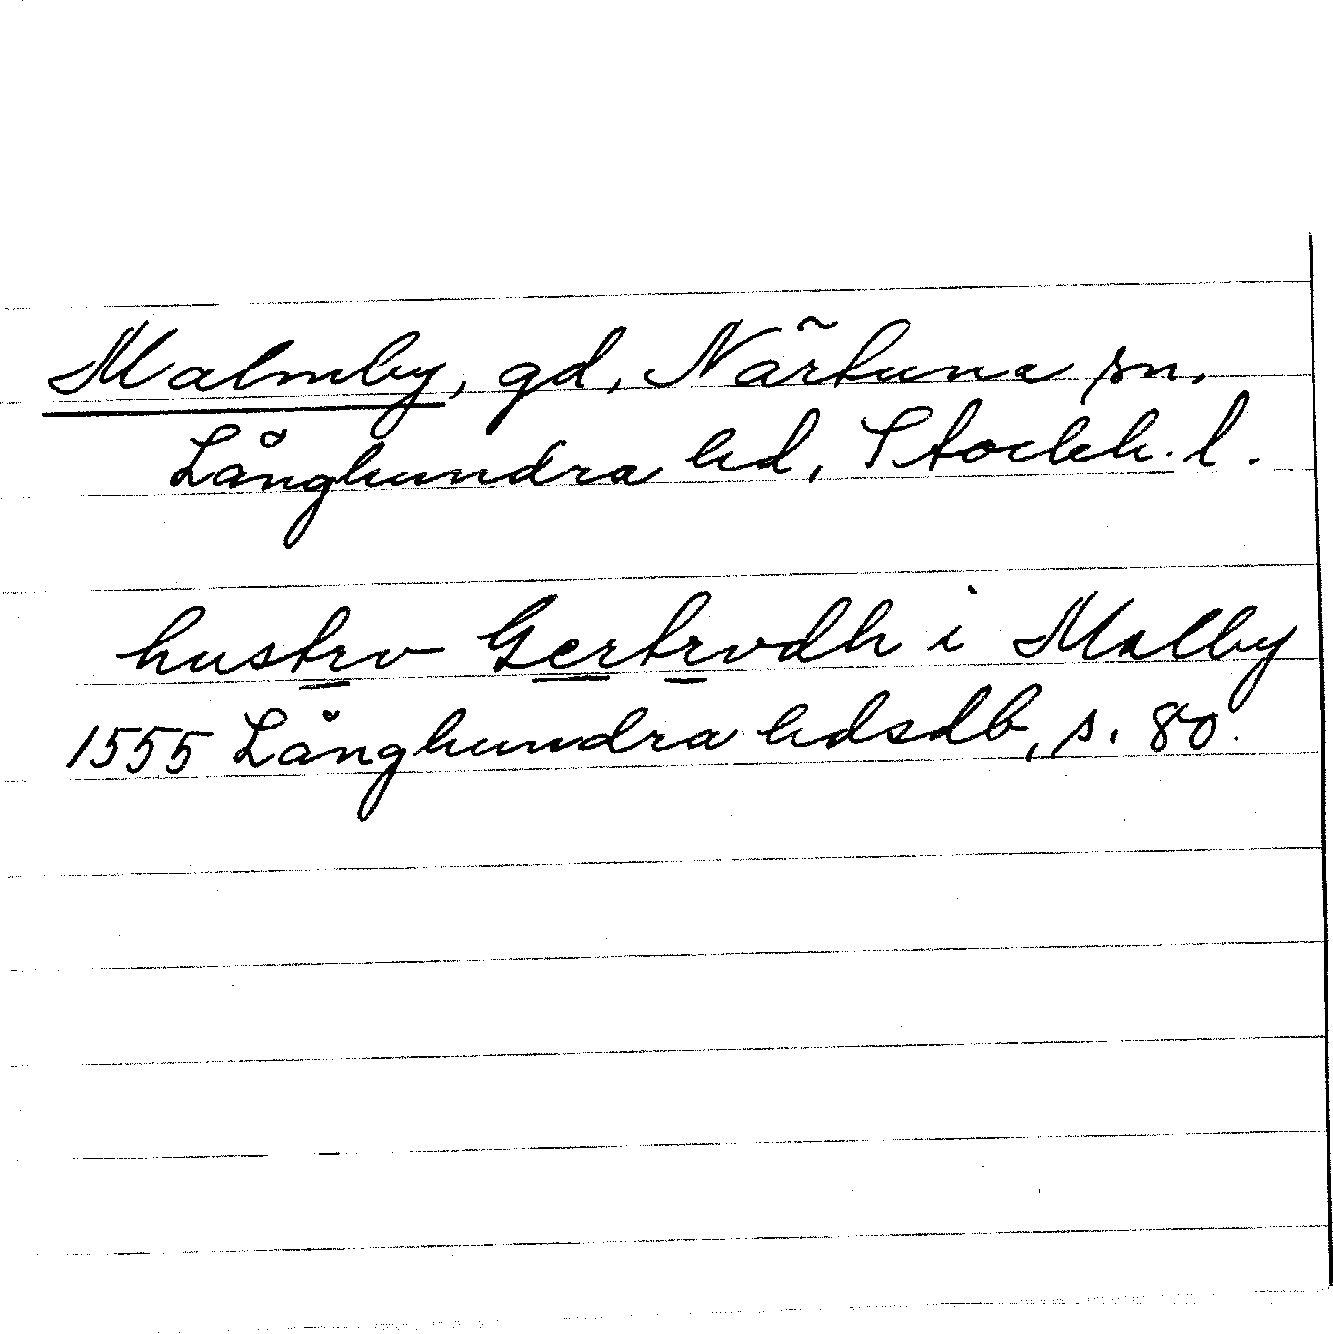 Malmby, gd, Närtuna sn,
Långhundra hd, Stockh. l.
hustrv Gertrvdh i Malby
1555 Långhundra hdsdb, s. 80.